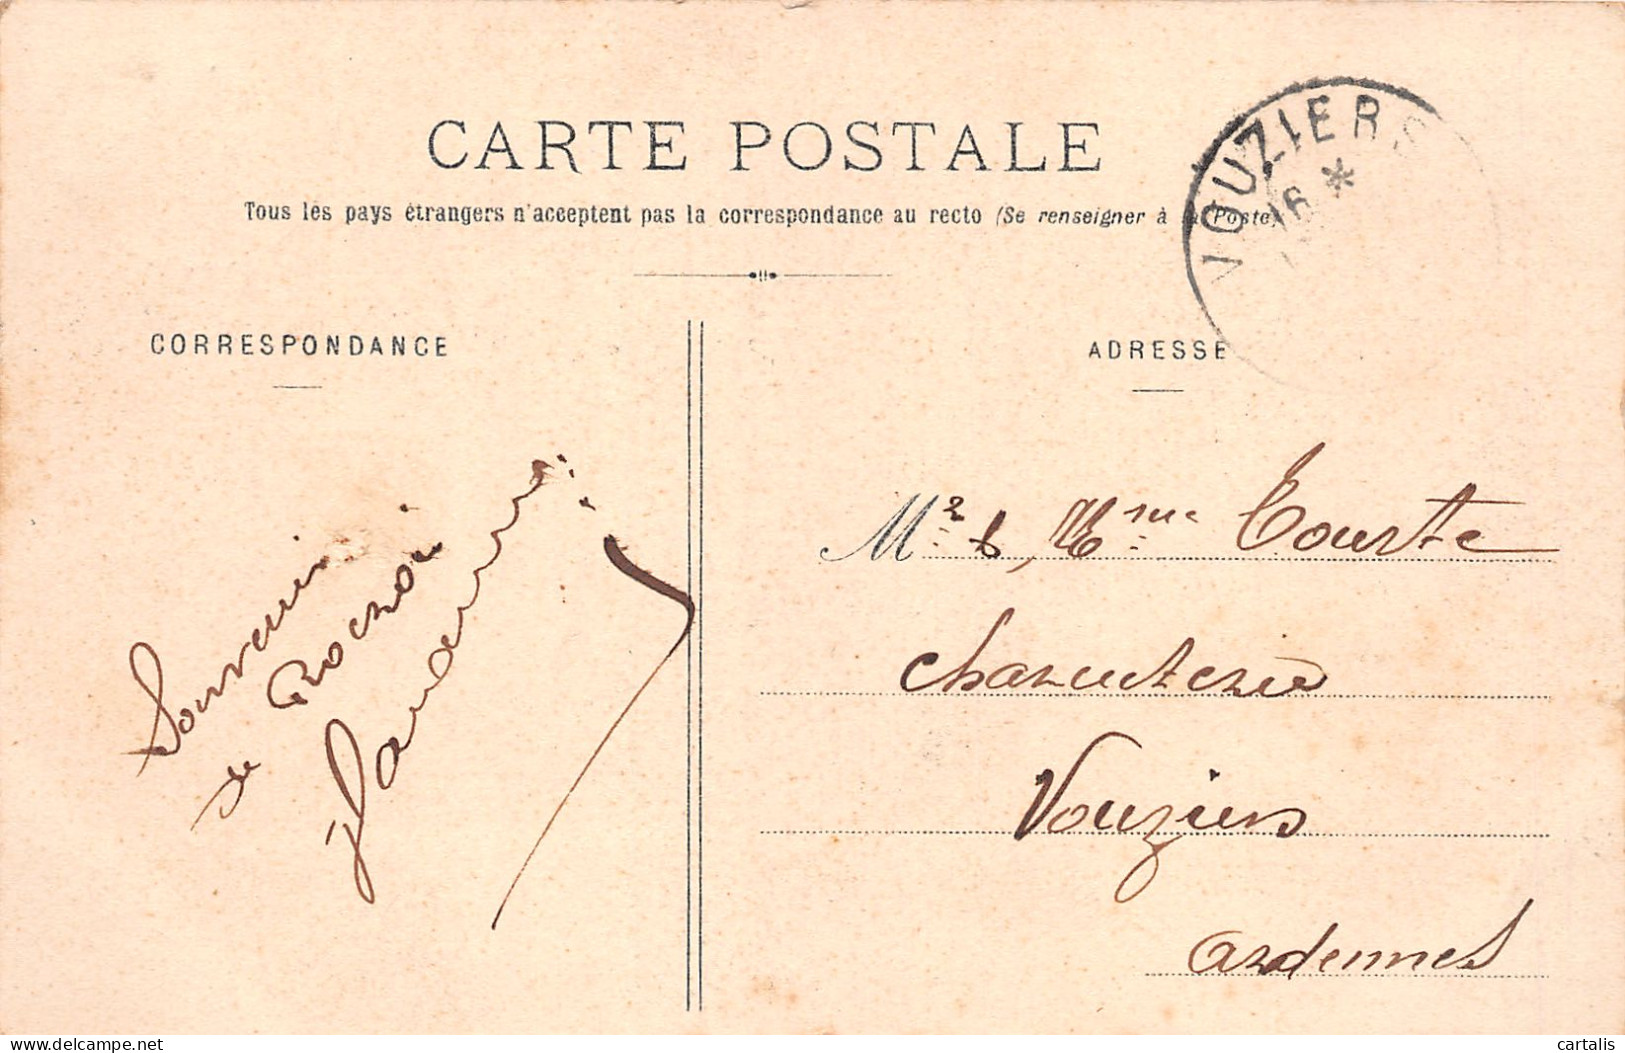 CARTE POSTALE
Tous les pays étrangers n'acceptent pas la correspondance au recto (Se renseigner à la Poste)
VOUZIERS
16 *
CORRESPONDANCE
ADRESSE
Souvenir
de Rocroi
Mr & Mme Tourte
Charcuterie
Vouziers
Ardennes
delcampe.net
cartalis